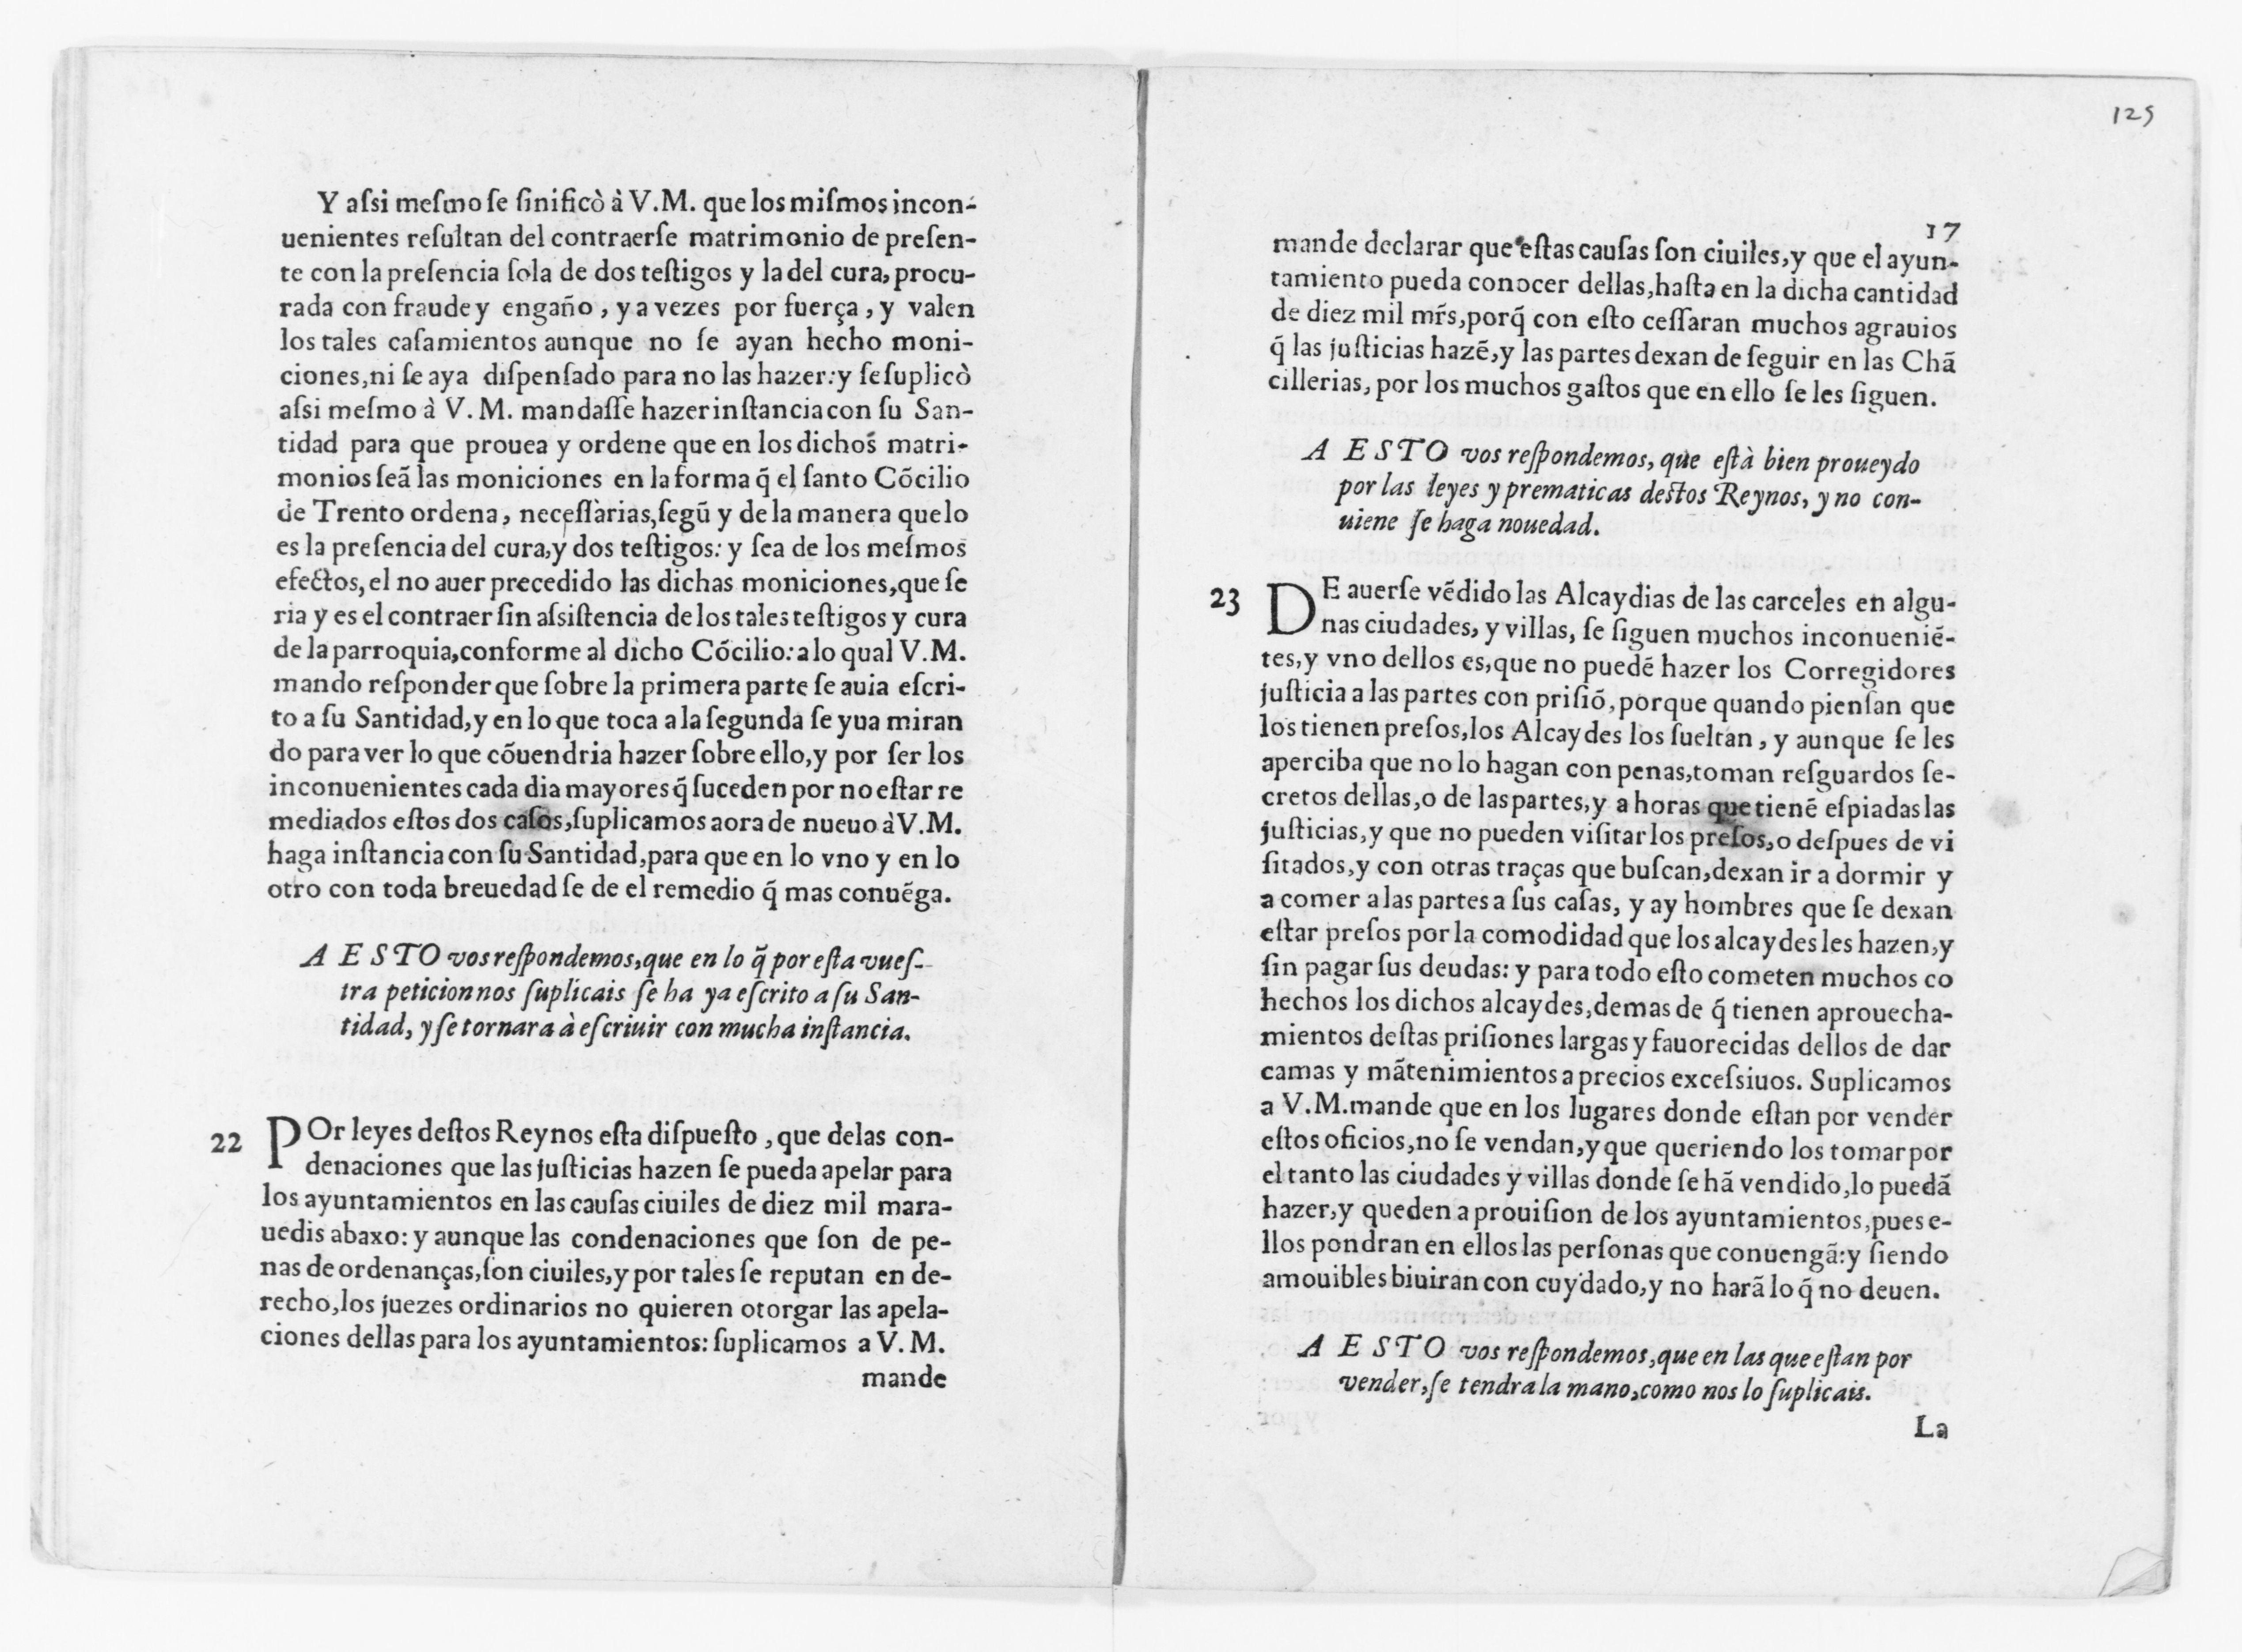 Y aſsi meſmo ſe ſinificò à V.M. que los miſmos incon-
uenientes reſultan del contraerſe matrimonio de preſen-
te con la preſencia ſola de dos teſtigos y la del cura, procu-
rada con fraude y engaño, y a vezes por fuerça, y valen
los tales caſamientos aunque no ſe ayan hecho moni-
ciones, ni ſe aya diſpenſado para no las hazer: y ſe ſuplicò
aſsi meſmo à V. M. mandaſſe hazer inſtancia con ſu San-
tidad para que prouea y ordene que en los dichos matri-
monios ſeã las moniciones en la forma q̃ el ſanto Cõcilio
de Trento ordena, neceſſarias, ſegũ y de la manera que lo
es la preſencia del cura, y dos teſtigos: y ſea de los meſmos
efectos, el no auer precedido las dichas moniciones, que ſe
ria y es el contraer ſin aſsiſtencia de los tales teſtigos y cura
de la parroquia, conforme al dicho Cõcilio: a lo qual V.M.
mando reſponder que ſobre la primera parte ſe auia eſcri-
to a ſu Santidad, y en lo que toca a la ſegunda ſe yua miran
do para ver lo que cõuendria hazer ſobre ello, y por ſer los
inconuenientes cada dia mayores q̃ ſuceden por no eſtar re
mediados eſtos dos caſos, ſuplicamos aora de nueuo à V.M.
haga inſtancia con ſu Santidad, para que en lo vno y en lo
otro con toda breuedad ſe de el remedio q̃ mas conuẽga.
A ESTO vos reſpondemos, que en lo q̃ por eſta vueſ-
tra peticion nos ſuplicais ſe ha ya eſcrito a ſu San-
tidad, y ſe tornara à eſcriuir con mucha inſtancia.
22 POr leyes deſtos Reynos eſta diſpueſto, que delas con-
denaciones que las juſticias hazen ſe pueda apelar para
los ayuntamientos en las cauſas ciuiles de diez mil mara-
uedis abaxo: y aunque las condenaciones que ſon de pe-
nas de ordenanças, ſon ciuiles, y por tales ſe reputan en de-
recho, los juezes ordinarios no quieren otorgar las apela-
ciones dellas para los ayuntamientos: ſuplicamos a V. M.
mande
125
17
mande declarar que eſtas cauſas ſon ciuiles, y que el ayun-
tamiento pueda conocer dellas, haſta en la dicha cantidad
de diez mil mr̃s, porq̃ con eſto ceſſaran muchos agrauios
q̃ las juſticias hazẽ, y las partes dexan de ſeguir en las Chã
cillerias, por los muchos gaſtos que en ello ſe les ſiguen.
A ESTO vos reſpondemos, que eſtà bien proueydo
por las leyes y prematicas deſtos Reynos, y no con-
uiene ſe haga nouedad.
23 DE auerſe vẽdido las Alcaydias de las carceles en algu-
nas ciudades, y villas, ſe ſiguen muchos inconueniẽ-
tes, y vno dellos es, que no puedẽ hazer los Corregidores
juſticia a las partes con priſiõ, porque quando pienſan que
los tienen preſos, los Alcaydes los ſueltan, y aunque ſe les
aperciba que no lo hagan con penas, toman reſguardos ſe-
cretos dellas, o de las partes, y a horas que tienẽ eſpiadas las
juſticias, y que no pueden viſitar los preſos, o deſpues de vi
ſitados, y con otras traças que buſcan, dexan ir a dormir y
a comer a las partes a ſus caſas, y ay hombres que ſe dexan
eſtar preſos por la comodidad que los alcaydes les hazen, y
ſin pagar ſus deudas: y para todo eſto cometen muchos co
hechos los dichos alcaydes, demas de q̃ tienen aprouecha-
mientos deſtas priſiones largas y fauorecidas dellos de dar
camas y mãtenimientos a precios exceſsiuos. Suplicamos
a V.M. mande que en los lugares donde eſtan por vender
eſtos oficios, no ſe vendan, y que queriendo los tomar por
el tanto las ciudades y villas donde ſe hã vendido, lo puedã
hazer, y queden a prouiſion de los ayuntamientos, pues e-
llos pondran en ellos las perſonas que conuengã: y ſiendo
amouibles biuiran con cuydado, y no harã lo q̃ no deuen.
A ESTO vos reſpondemos, que en las que eſtan por
vender, ſe tendra la mano, como nos lo ſuplicais.
La